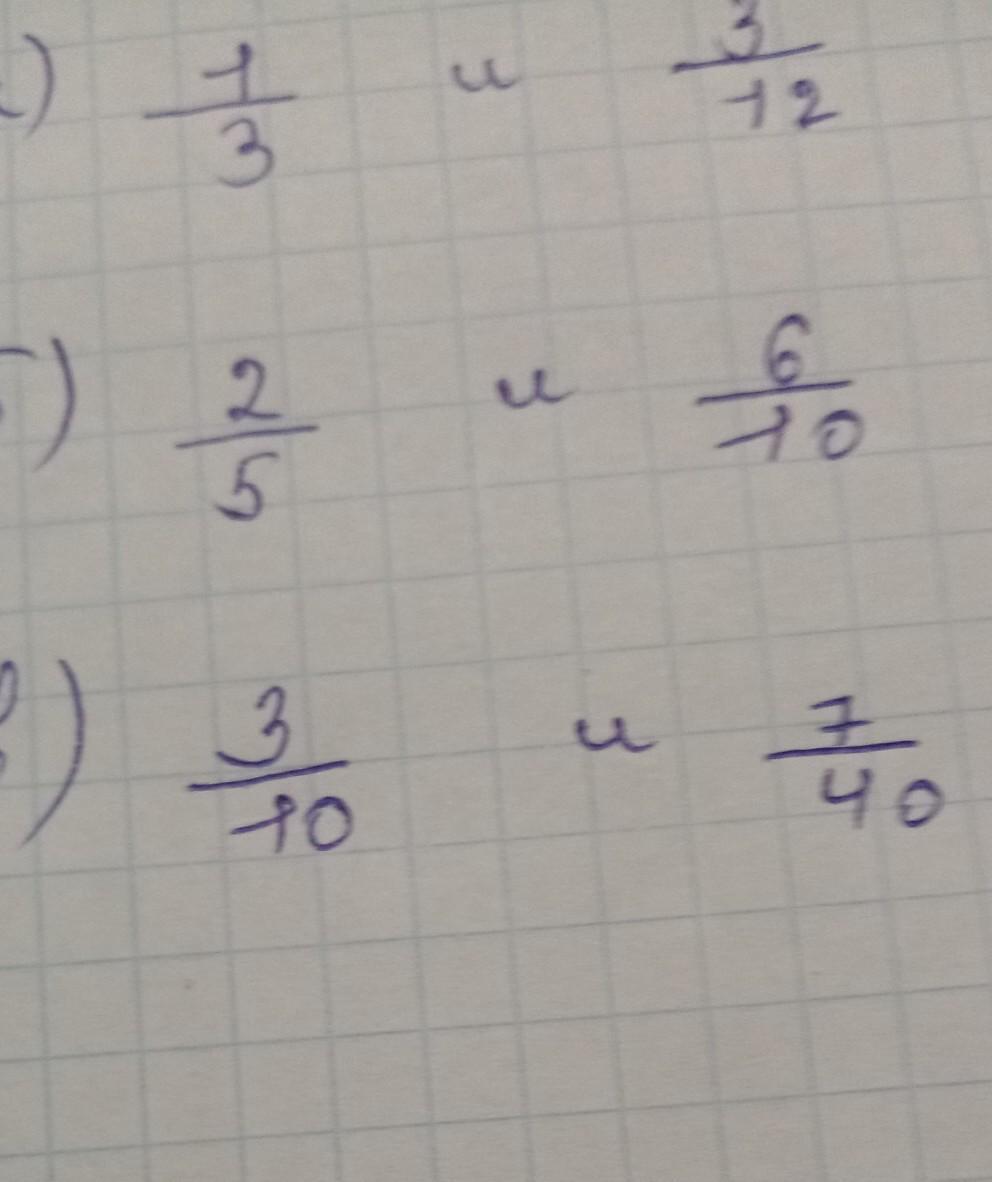 ) 1/3 и 3/12
б) 2/5 и 6/10
в) 3/10 и 7/40